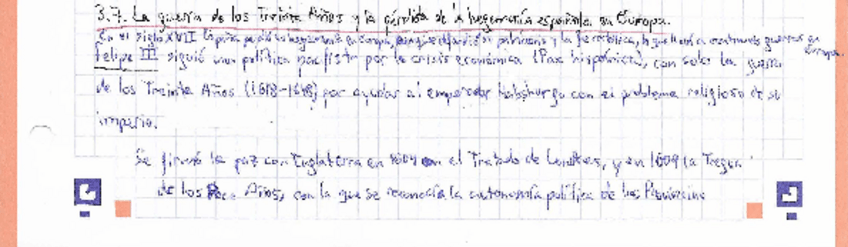 3.7. La guerra de los Treinta Años y la pérdida de la hegemonía española en Europa.
En el siglo XVII España perdió la hegemonía en Europa, quiso defender su patrimonio y la fe católica, lo que llevó a continuas guerras en Europa.
Felipe III siguió una política pacifista por la crisis económica (Pax hispánica), con solo la guerra
de los Treinta Años (1618-1648) por ayudar al emperador habsburgo con el problema religioso de su
imperio.
Se firmó la paz con Inglaterra en 1604 con el Tratado de Londres, y en 1609 la Tregua
de los Doce Años, con la que se reconocía la autonomía política de las Provincias